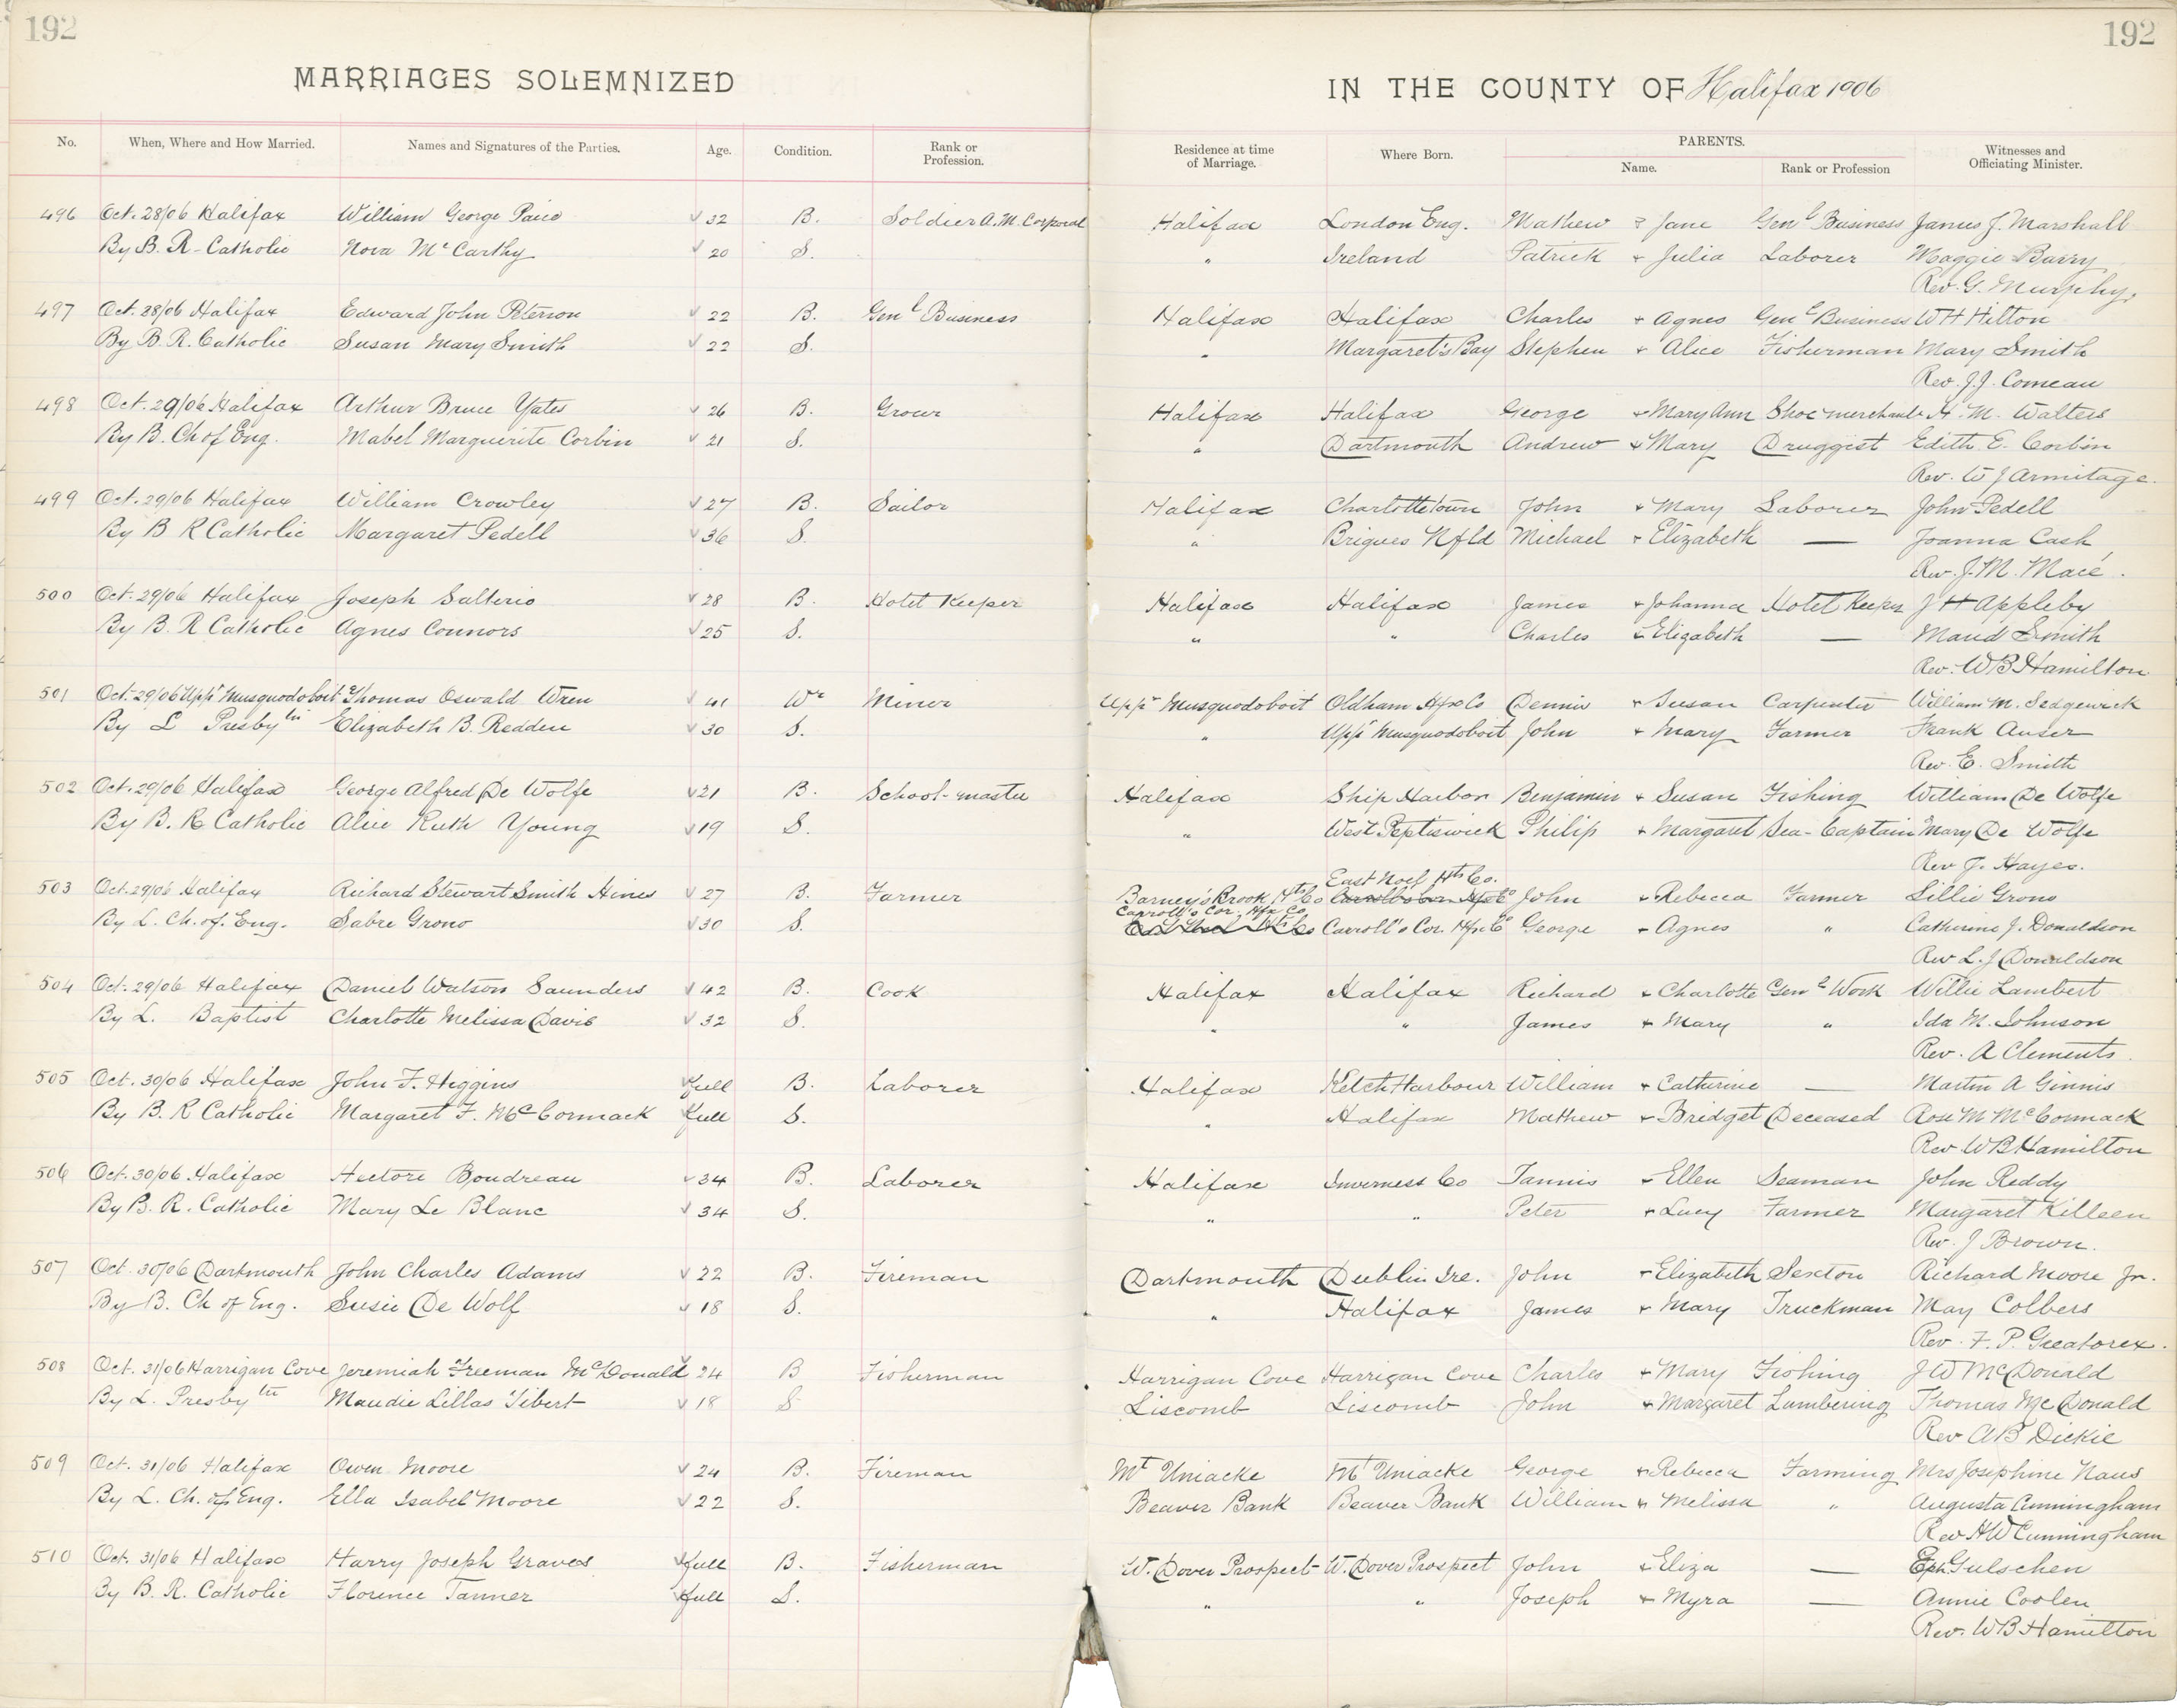 192
192
MARRIAGES SOLEMNIZED
IN THE COUNTY OF Halifax 1906
No. When, Where and How Married. Names and Signatures of the Parties. Age. Condition. Rank or Profession. Residence at time of Marriage. Where Born. PARENTS. Name. Rank or Profession Witnesses and Officiating Minister.
496 Oct. 28/06 Halifax William George 32 B. Soldier A.M. Corporal Halifax London Eng. Mathew & Jane Genl Business James J. Marshall
By B. R. Catholic Nora McCarthy 20 S. " Ireland Patrick + Julia Laborer Maggie Barry
Rev. G. Murphy
497 Oct. 28/06 Halifax Edward John Peterson 22 B. Genl Business Halifax Halifax Charles + Agnes Genl Business W H Hilton
By B. R. Catholic Susan Mary Smith 22 S. " Margaret's Bay Stephen + Alice Fisherman Mary Smith
Rev. J. J. Comeau
498 Oct. 29/06 Halifax Arthur Bruce Yates 26 B. Grocer Halifax Halifax George + Mary Ann Shoe merchant A. M. Walters
By B. Ch of Eng. Mabel Marguerite Corbin 21 S. " Dartmouth Andrew + Mary Druggist Edith E. Corbin
Rev. W J Armitage.
499 Oct. 29/06 Halifax William Crowley 27 B. Sailor Halifax Charlottetown John + Mary Laborer John Pedell
By B R Catholic Margaret Pedell 36 S. " Brigues Nfld Michael + Elizabeth — Joanna Cash
Rev. J. M. Macé.
500 Oct. 29/06 Halifax Joseph Salterio 28 B. Hotel Keeper Halifax Halifax James + Johanna Hotel Keeper J H Appleby
By B. R Catholic Agnes Connors 25 S. " " Charles + Elizabeth — Maud Smith
Rev. W B Hamilton
501 Oct. 29/06 Uppr Musquodoboit Thomas Oswald Wren 41 Wr Miner Uppr Musquodoboit Oldham Hfx Co Dennis + Susan Carpenter William M. Sedgewick
By L Presbytn Elizabeth B. Redden 30 S. " Uppr Musquodoboit John + Mary Farmer Frank Auser
Rev. E. Smith
502 Oct. 29/06 Halifax George Alfred De Wolfe 21 B. School-master Halifax Ship Harbor Benjamin + Susan Fishing William De Wolfe
By B. R Catholic Alice Ruth Young 19 S. " West Peptiswick Philip + Margaret Sea-Captain Mary De Wolfe
Rev J. Hayes.
East Noel Hts Co.
503 Oct. 29/06 Halifax Richard Stewart Smith Hines 27 B. Farmer Barney's Brook Hts Co Carroll's Cor. Hfx Co John + Rebecca Farmer Lillie Grono
Carroll's Cor. Hfx Co
By L. Ch. of. Eng. Sabre Grono 30 S. Carroll's Cor. Hfx Co George + Agnes " Catherine J. Donaldson
Rev L. J Donaldson
504 Oct. 29/06 Halifax Daniel Watson Saunders 42 B. Cook Halifax Halifax Richard + Charlotte Genl Work Willie Lambert
By L. Baptist Charlotte Melissa Davis 32 S. " " James + Mary " Ida M. Johnson
Rev. A Clements.
505 Oct. 30/06 Halifax John F. Higgins full B. Laborer Halifax Ketch Harbour William + Catherine — Martin A Ginnis
By B. R Catholic Margaret F. McCormack full S. " Halifax Mathew + Bridget Deceased Rose M McCormack
Rev. W B Hamilton
506 Oct. 30/06 Halifax Hectore Boudreau 34 B. Laborer Halifax Inverness Co Tannis + Ellen Seaman John Reddy
By B. R. Catholic Mary Le Blanc 34 S. " " Peter + Lucy Farmer Margaret Killeen
Rev. J Brown.
507 Oct. 30/06 Dartmouth John Charles Adams 22 B. Fireman Dartmouth Dublin Ire. John + Elizabeth Sexton Richard Moore Jr.
By B. Ch of Eng. Susie De Wolf 18 S. " Halifax James + Mary Truckman May Colbers
Rev. F. P. Greatorex.
508 Oct. 31/06 Harrigan Cove Jeremiah Freeman McDonald 24 B Fisherman Harrigan Cove Harrigan Cove Charles + Mary Fishing J W McDonald
By L. Presbytn Maudie Lillas Tibert 18 S Liscomb Liscomb John + Margaret Lumbering Thomas McDonald
Rev A B Dickie
509 Oct. 31/06 Halifax Owen Moore 24 B. Fireman Mt Uniacke Mt Uniacke George + Rebecca Farming Mrs Josephine Naus
By L. Ch. of Eng. Ella Isabel Moore 22 S. Beaver Bank Beaver Bank William + Melissa " Augusta Cunningham
Rev H W Cunningham
510 Oct. 31/06 Halifax Harry Joseph Graves full B. Fisherman W. Dover Prospect W. Dover Prospect John + Eliza — Eph. Gulschen
By B. R. Catholic Florence Tanner full S. " " Joseph + Myra — Annie Coolen
Rev. W B Hamilton